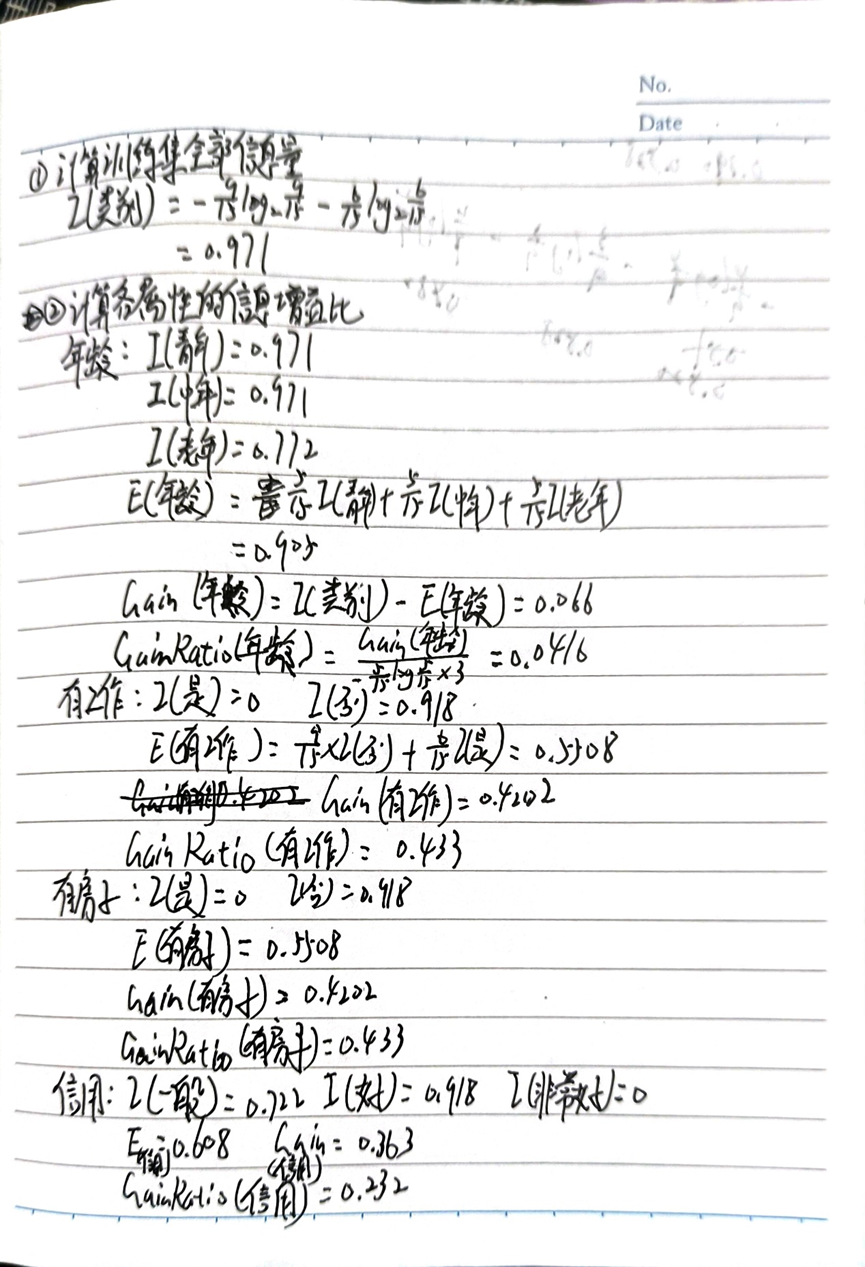 No.
Date
① 计算训练集全部信息量
I(类别) = - 9/15 log₂ 9/15 - 6/15 log₂ 6/15
= 0.971
② 计算各属性的信息增益比
年龄: I(青年) = 0.971
I(中年) = 0.971
I(老年) = 0.772
E(年龄) = 5/15 I(青年) + 5/15 I(中年) + 5/15 I(老年)
= 0.905
Gain (年龄) = I(类别) - E(年龄) = 0.066
GainRatio(年龄) = Gain(年龄) / - 5/15 log 5/15 × 3 = 0.0416
有工作: I(是) = 0 I(否) = 0.918
E(有工作) = 9/15 × I(否) + 6/15 I(是) = 0.5508
Gain (有工作) = 0.4202
Gain Ratio (有工作) = 0.433
有房子: I(是) = 0 I(否) = 0.918
E(有房子) = 0.5508
Gain(有房子) = 0.4202
GainRatio(有房子) = 0.433
信用: I(一般) = 0.722 I(好) = 0.918 I(非常好) = 0
E(信用) = 0.608 Gain(信用) = 0.363
GainRatio(信用) = 0.232